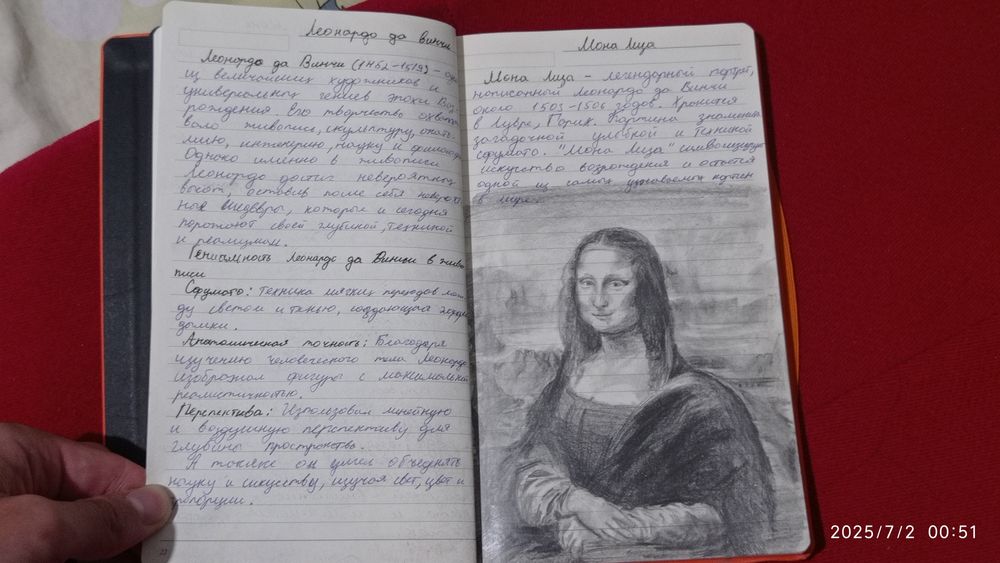 Леонардо да Винчи
Леонардо да Винчи (1452-1519) - один
из величайших художников и
универсальных гениев эпохи Воз-
рождения. Его творчество охваты-
вало живопись, скульптуру, анато-
мию, инженерию, науку и философию.
Однако именно в живописи
Леонардо достиг невероятных
высот, оставив после себя
шедевры, которые и сегодня
поражают своей глубиной, техникой
и реализмом.
Гениальность Леонардо да Винчи в живо
писи
Сфумато: Техника мягких переходов меж-
ду светом и тенью, создающая эффект
дымки.
Анатомическая точность: Благодаря
изучению человеческого тела Леонардо
изображал фигуры с максимальной
реалистичностью.
Перспектива: Использовал линейную
и воздушную перспективу для
глубины пространства.
А также он умел объединять
науку и искусство, изучая свет, цвет и
пропорции.
Мона Лиза
Мона Лиза - легендарный портрет,
написанный Леонардо да Винчи
около 1503-1506 годов. Хранится
в Лувре, Париж. Картина знаменита
загадочной улыбкой и техникой
сфумато. "Мона Лиза" символизирует
искусство возрождения и остается
одной из самых узнаваемых картин
в мире.
2025/7/2 00:51